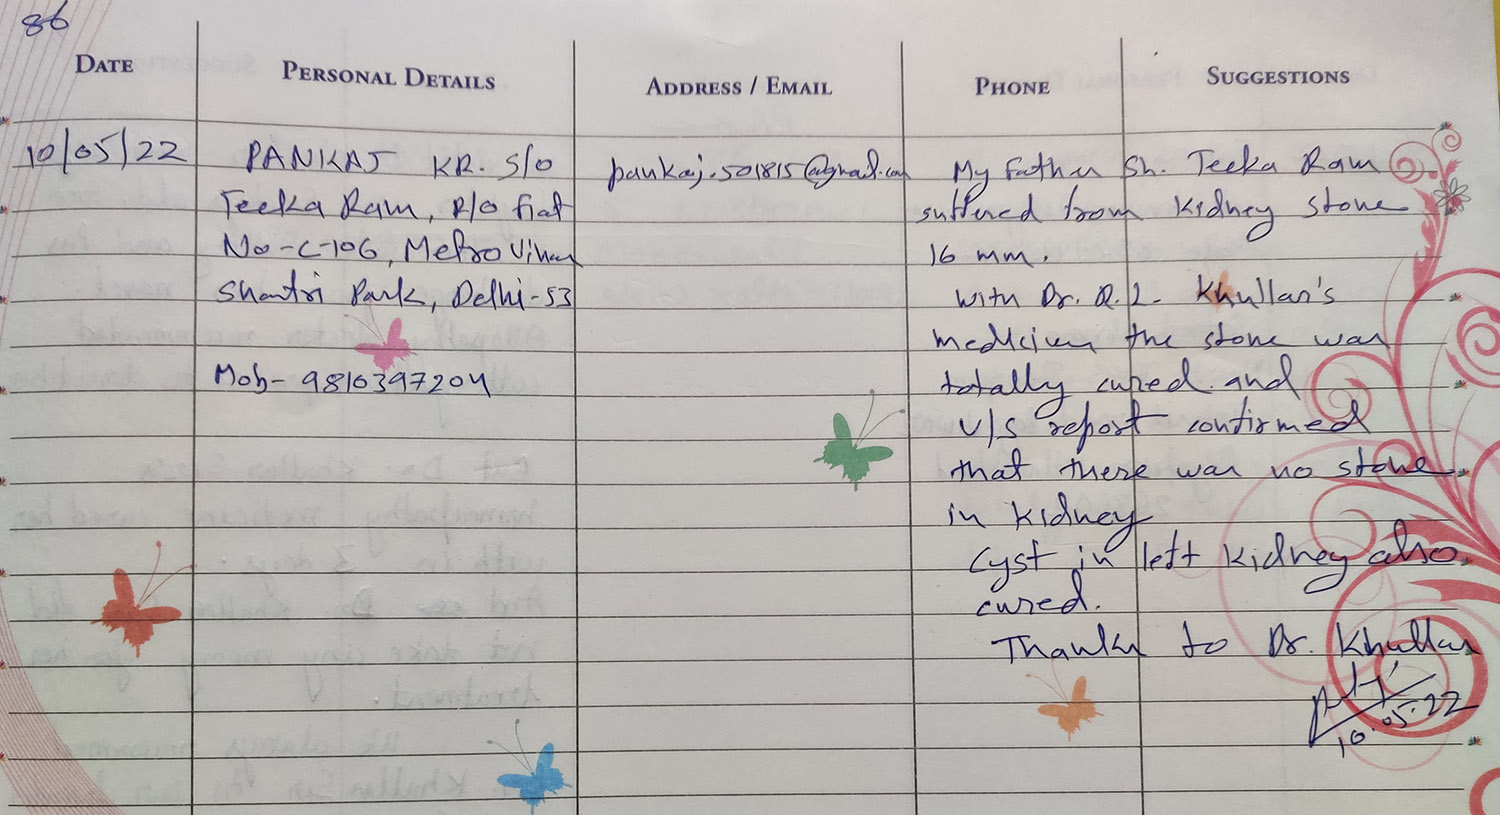 86
DATE PERSONAL DETAILS ADDRESS / EMAIL PHONE SUGGESTIONS
10/05/22
PANKAJ KR. S/O
Teeka Ram, R/o flat
No-C-106, Metro Vihar
Shastri Park, Delhi-53
Mob- 9810397204
pankaj.501815@gmail.com
My Father Sh. Teeka Ram
suffered from Kidney stone
16 mm.
with Dr. R.L. Khullar's
medicien the stone was
totally cured and
U/S report confirmed
that there was no stone
in Kidney
cyst in left kidney also
cured.
Thanks to Dr. Khullar
10.05.22